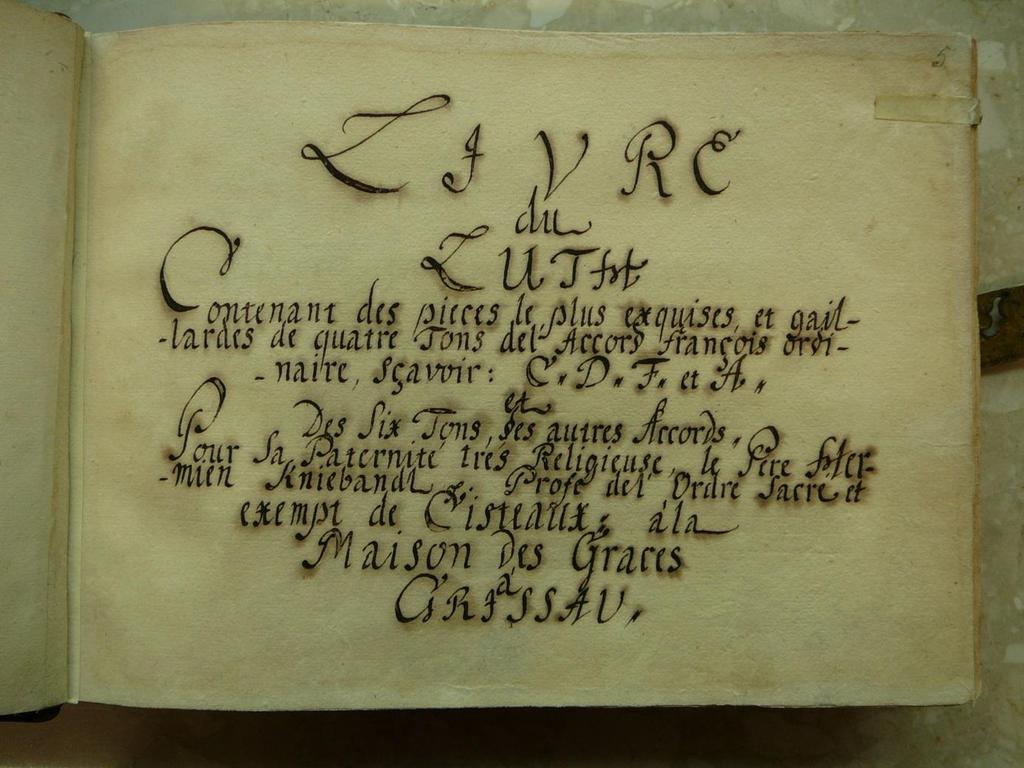 5
LIVRE
du
LUTH
Contenant des pieces le plus exquises, et gail-
-lardes de quatre Tons del' Accord françois ordi-
-naire, sçavoir: C. D. F. et A.
et
Des Six Tons, des autres Accords.
Pour Sa Paternité trés Religieuse, le Pere Her-
-mien Kniebandl
Profe del' Ordre Sacré et
exempt de Cisteaux: á la
Maison des Graces
a
GRISSAU.